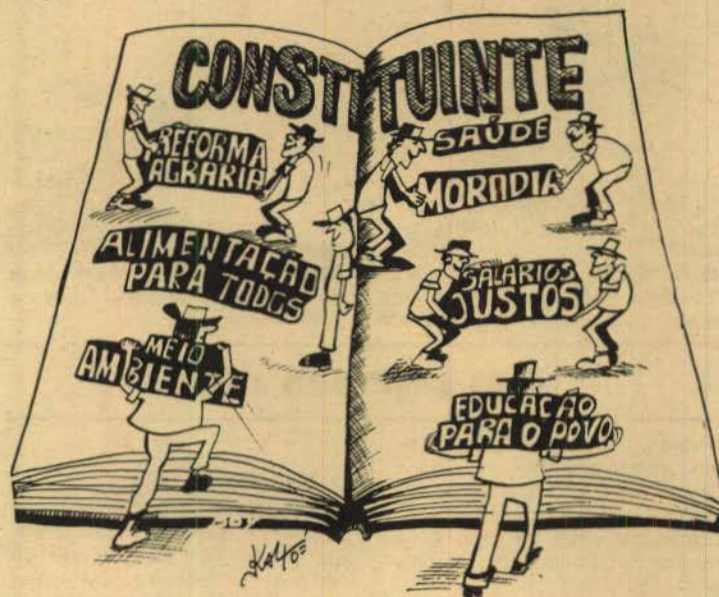 CONSTITUINTE
REFORMA
AGRARIA
ALIMENTAÇÃO
PARA TODOS
MEIO
AMBIENTE
SAÚDE
MORADIA
SALÁRIOS
JUSTOS
EDUCAÇÃO
PARA O POVO